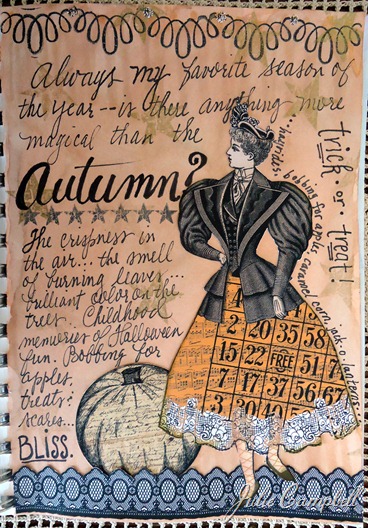 Always my favorite season of
the year -- is there anything more
magical than the
Autumn?
The crispness in
the air... the smell
of burning leaves...
brilliant color on the
trees... Childhood
memories of Halloween
fun. Bobbing for
apples,
treats &
scares...
BLISS.
...hayrides, bobbing for apples, caramel corn, jack-o-lanterns...
trick-or-treat!
4
2 20 35 58
15 22 FREE 51
7 17 37 56 67
3 30 40
Julie Campbell